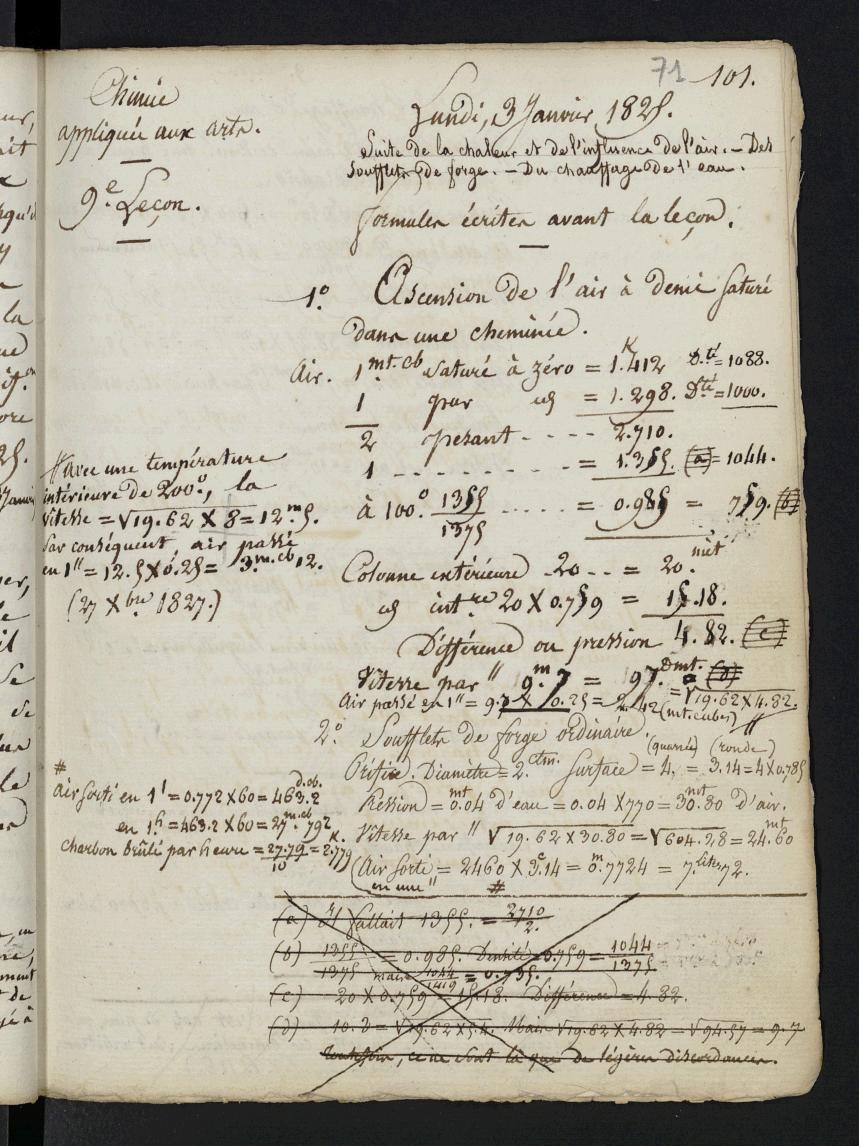 71 101.
Chimie
appliquée aux arts.
9.e Leçon.
Lundi, 3 Janvier 1825.
Suite de la chaleur et de l'influence de l'air. – Des
soufflets de forge. – Du chauffage de l'eau.
formules écrites avant la leçon.
1.o Ascension de l'air à demi saturé
dans une cheminée.
Air. 1 mt. cb saturé à zéro = 1.K412 D.té = 1088.
1 pur = 1.298. Dté = 1000.
2 pesant - - - - 2.710.
1 - - - - - - - = 1.355. (a) = 1044.
à 100.o 1355/1375 ..... = 0.985 = 759. (b)
Colonne extérieure 20 - - = 20. mèt
intre 20 X 0.759 = 15.18.
Différence ou pression 4.82. (c)
Vitesse par " 9.m7 = 97. Dmt. (d)
= √19.62 X 4.82.
Air passé en 1" = 9.7 X 0.25 = 2.42 (mt. cubes) #
# Avec une température
intérieure de 200.o, la
vitesse = √19.62 X 8 = 12.m5.
Par conséquent, air passé
en 1" = 12.5 X 0.25 = 3.m.cb 12.
(27 Xbre 1827.)
2.o Soufflets de forge ordinaire.
(quarrée) (ronde)
Orifice. Diamètre = 2. ctm. Surface = 4. = 3.14 = 4 X 0.785
Pression = 0.mt04 d'eau = 0.04 X 770 = 30.mt80 d'air.
Vitesse par " √19.62 X 30.80 = √604.28 = 24.mt60
(Air sorti = 2460 X 3.c14 = 0.m7724 = 7.lites72.
en une " #
#
Air sorti en 1' = 0.772 X 60 = 463.2 d.cb.
en 1.h = 463.2 X 60 = 27.m.cb 792
Charbon brûlé par heure = 27.79/10 = 2.K779
(a) Il fallait 1355. = 2710/2.
(b) 1355/1375 = 0.985. Densité = 0.759 = 1044/1375
mais 1044/1419 = 0.735.
(c) 20 X 0.759 = 15.18. Différence = 4.82.
(d) 10.3 = √19.62 X 5.4. Mais √19.62 X 4.82 = √94.57 = 9.7
Toutefois, ce ne sont là que de légères discordances.